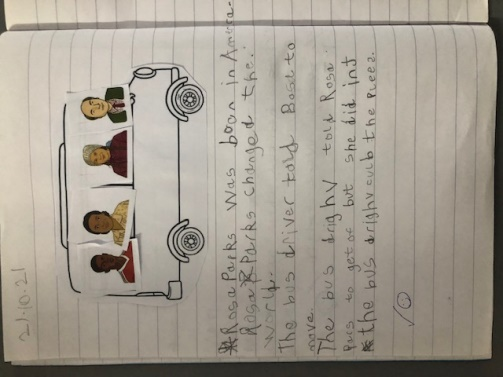 21.10.21
Rosa Parks was boan in America.
Rosa Parks changed the
world.
The bus driver told Rosa to
move.
The bus drighv told Rosa
Parcs to get of but she did int
the bus drighv culb the Pleez.